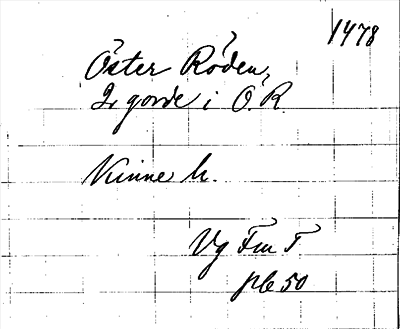 1478
Öster Röden,
2 gorde i Ö. R.
Kinne h.
Vg Fm T
pb 50